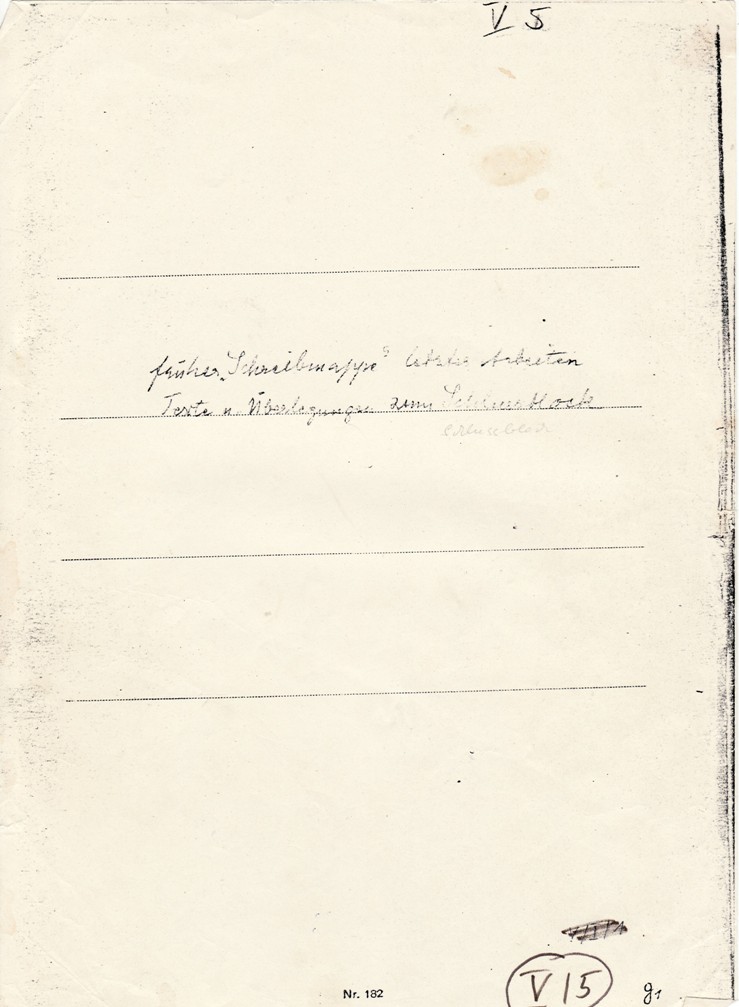 V 5
früher „Schreibmappe“ letzte Arbeiten
Texte u. Überlegungen zum Schlussblock
Schlussblock
Nr. 182
V/5